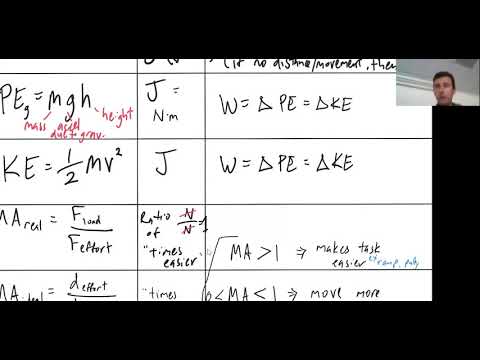 (if no distance/movement, then
PEg = mgh
mass accel due to grav. height
J =
N·m
W = Δ PE = Δ KE
KE = 1/2 mv²
J
W = Δ PE = Δ KE
MA real = Fload / Feffort
Ratio
of N/N = 1
"times
easier"
MA > 1 ⇒ makes task
easier
deffort
"times
0 < MA < 1 ⇒ move more